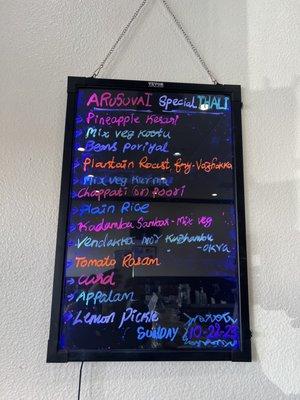 VEVOR
ARUSUVAI Special THALI
Pineapple Kesari
Mix veg Kootu
Beans Poriyal
Plantain Roast fry-Vazhakka
Mix veg Kurma
Chappati (or) Poori
Plain Rice
Kadamba Sambar-Mix veg
Vendakka Mor Kuzhambu
-okra
Tomato Rasam
curd
Appalam
Lemon Pickle
SUNDAY 10-22-23